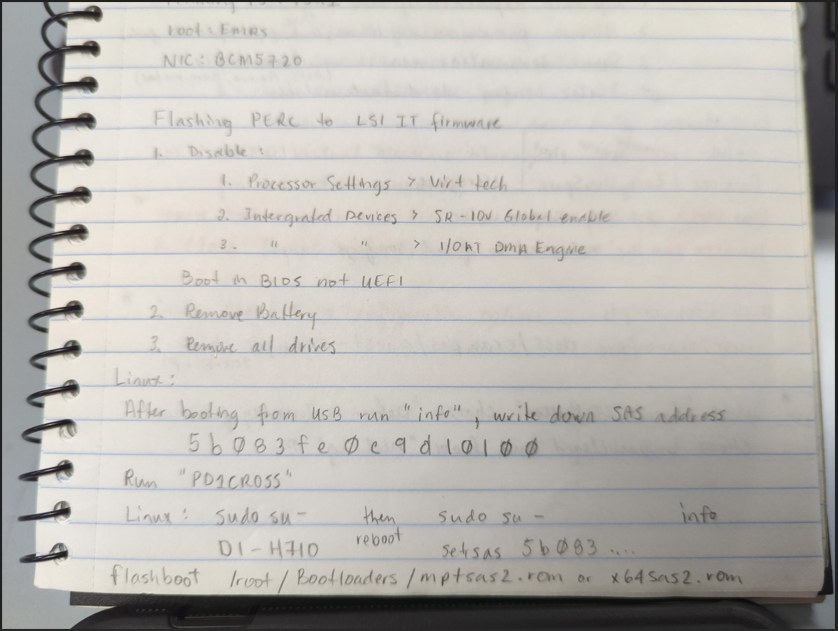 root: Emrs
NIC: BCM5720
Flashing PERC to LSI IT firmware
1. Disable:
1. Processor Settings > Virt tech
2. Intergrated Devices > SR-IOV Global enable
3. " " > I/OAT DMA Engine
Boot in BIOS not UEFI
2. Remove Battery
3. Remove all drives
Linux:
After booting from USB run "info", write down SAS address
5b083fe0c9d10100
Run "PD1CROSS"
Linux: sudo su - then sudo su - info
D1-H710 reboot setsas 5b083....
flashboot /root/Bootloaders/mptsas2.rom or x64sas2.rom